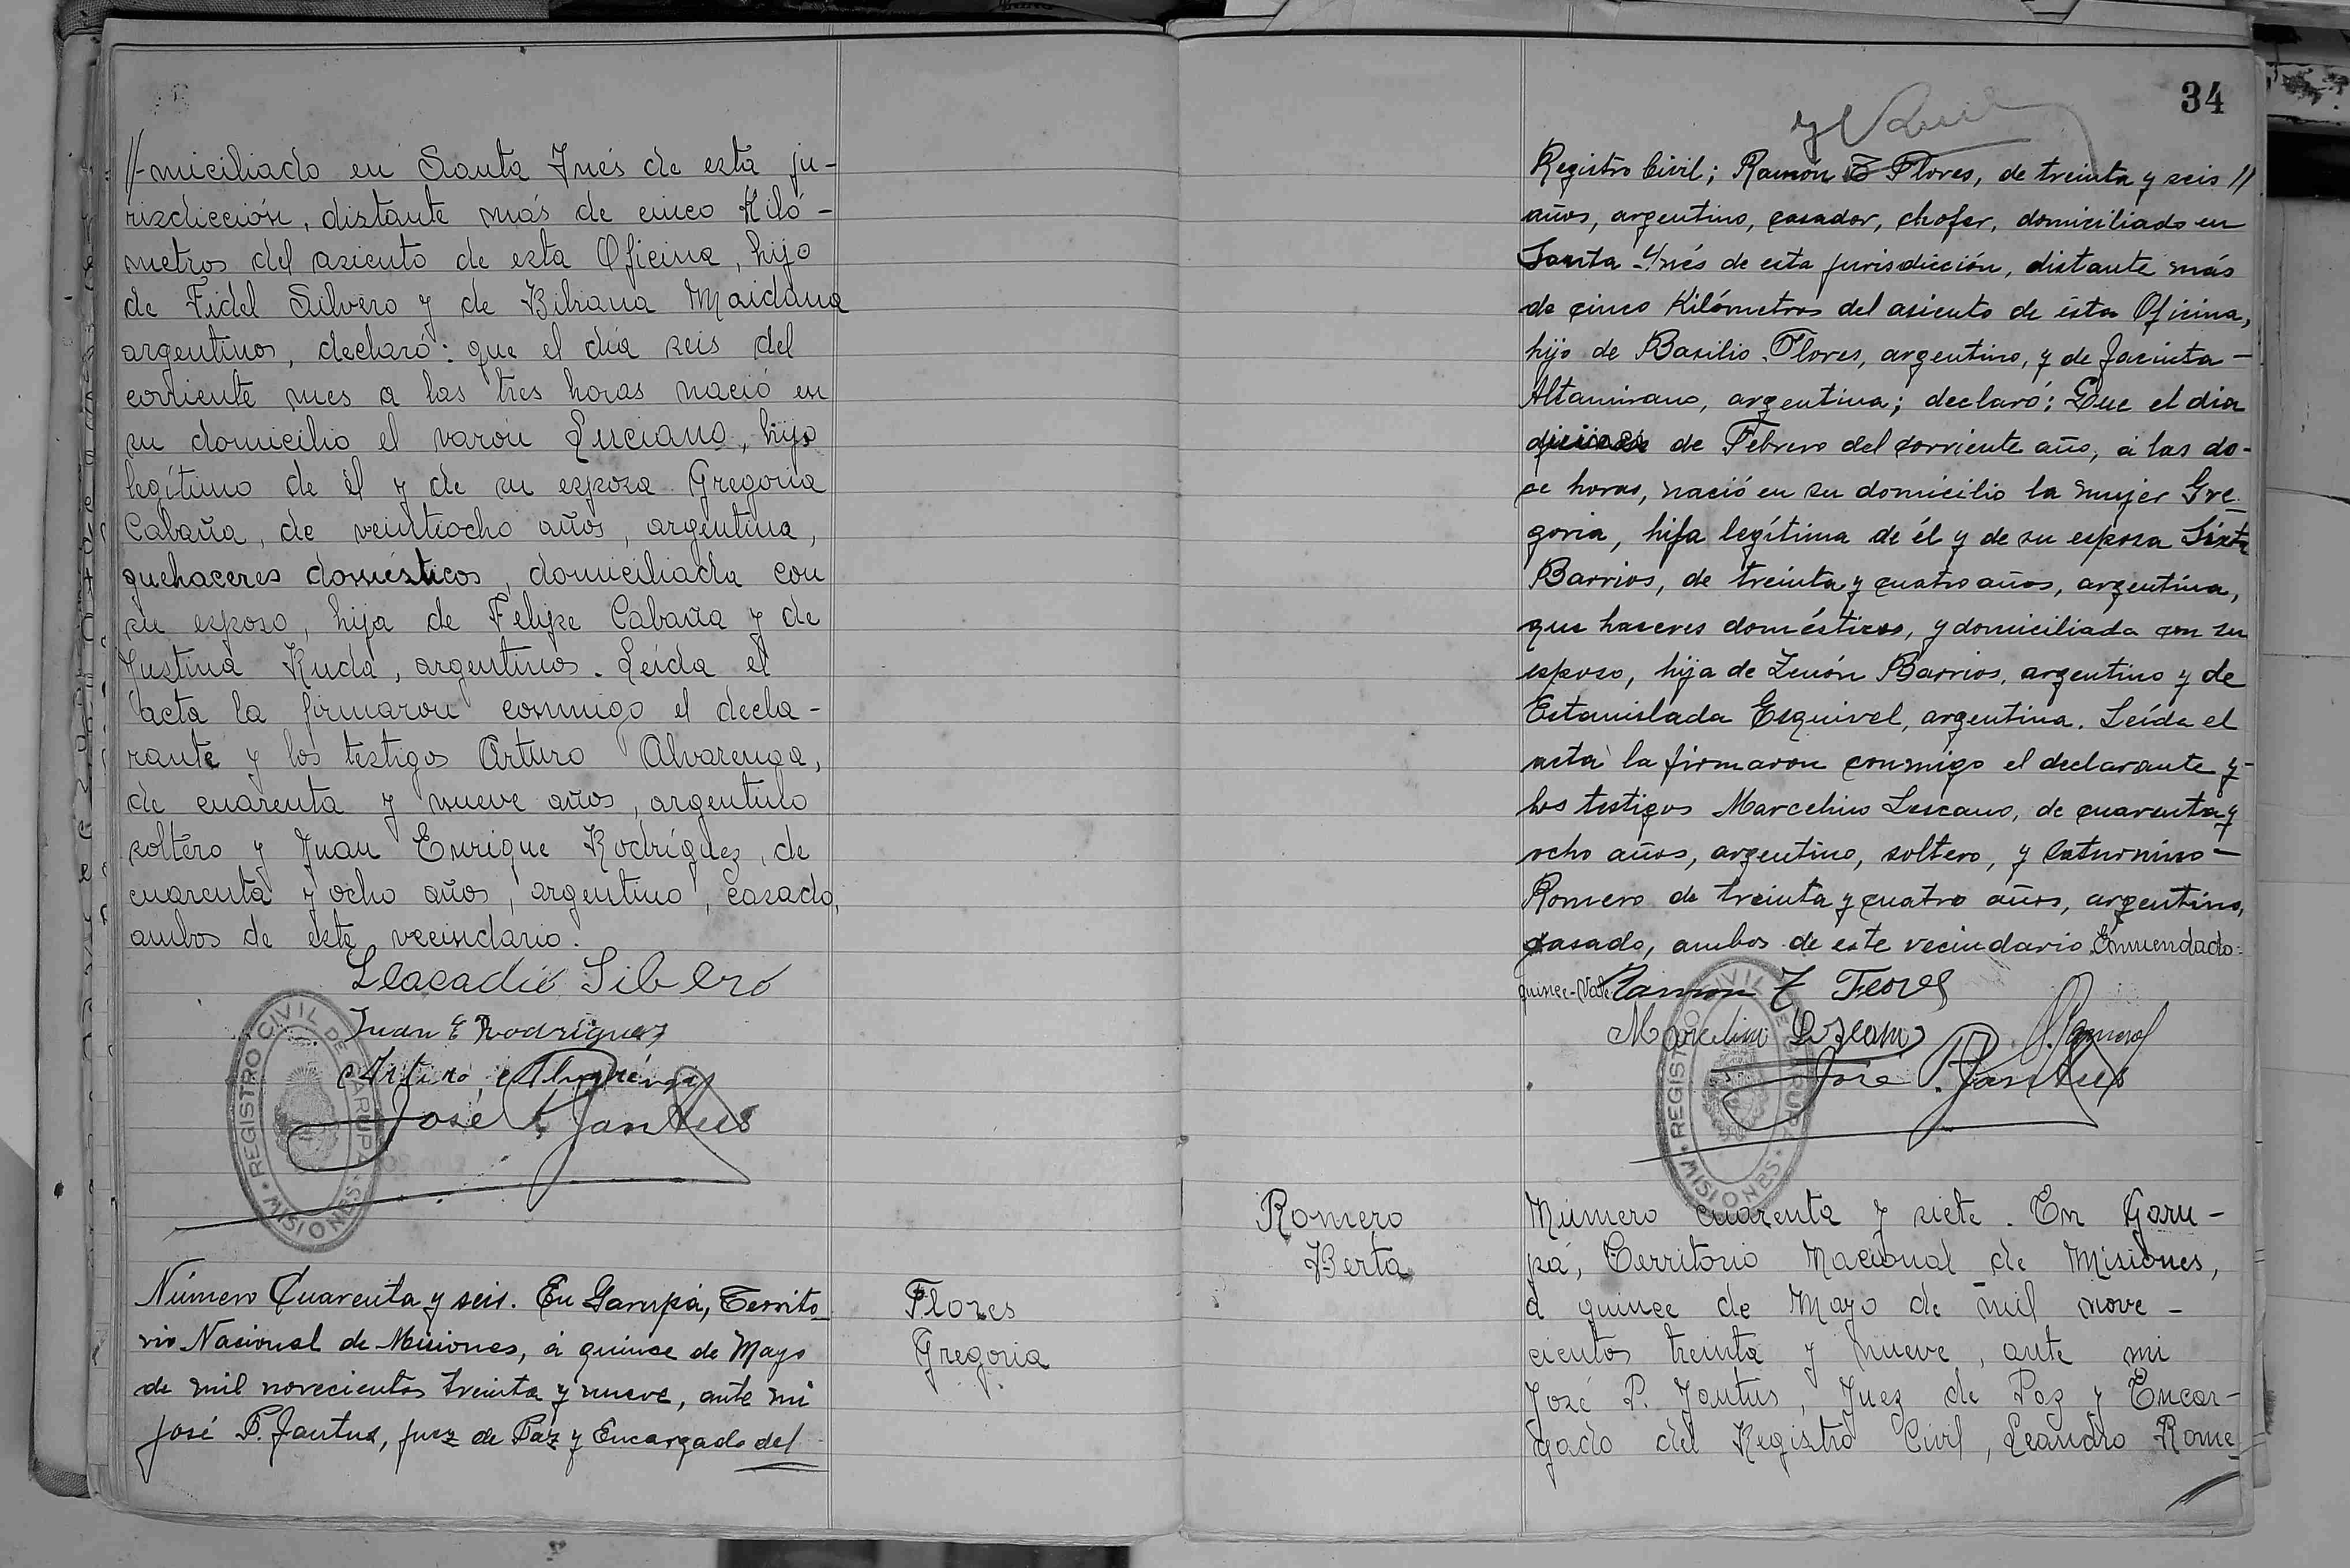 //-miciliado en Santa Inés de esta ju-
risdicción, distante más de cinco Kiló-
metros del asiento de esta Oficina, hijo
de Fidel Silvero y de Bibiana Maidana
argentinos, declaró: que el día seis del
corriente mes a las tres horas nació en
su domicilio el varón Luciano, hijo
legítimo de él y de su esposa Gregoria
Cabaña, de veintiocho años, argentina,
quehaceres domésticos, domiciliada con
su esposo, hija de Felipe Cabaña y de
Justina Ruda, argentinos. Leída el
acta la firmaron conmigo el decla-
rante y los testigos Arturo Alvarenga,
de cuarenta y nueve años, argentino
soltero y Juan Enrique Rodríguez, de
cuarenta y ocho años, argentino, casado,
ambos de este vecindario.
Leacadio Silbero
Juan E Rodriguez
Arturo Alvarénga
José P. Jantus
REGISTRO CIVIL DE GARUPA
MISIONES
Número Cuarenta y seis. En Garupá, Territo-
rio Nacional de Misiones, á quince de Mayo
de mil novecientos treinta y nueve, ante mi
José P. Jantus, juez de Paz y Encargado del
Flores
Gregoria
34
Registro Civil; Ramón Flores, de treinta y seis //
años, argentino, casador, chofer, domiciliado en
Santa Inés de esta jurisdicción, distante más
de cinco Kilómetros del asiento de esta Oficina,
hijo de Basilio Flores, argentino, y de Jacinta -
Altamirano, argentina; declaró: Que el día
de Febrero del corriente año, á las do-
ce horas, nació en su domicilio la mujer Gre-
goria, hija legítima de él y de su esposa Sixta
Barrios, de treinta y cuatro años, argentina,
que haceres domésticos, y domiciliada con su
esposo, hija de Zenón Barrios, argentino y de
Estanislada Esquivel, argentina. Leída el
acta la firmaron conmigo el declarante y-
los testigos Marcelino Lescano, de cuarenta y
ocho años, argentino, soltero, y Saturnino -
Romero de treinta y cuatro años, argentino,
casado, ambos de este vecindario. Enmendado:
quince-Vale. Ramon Z Flores
Marcelino Lescano S. Romero
José P. Jantus
REGISTRO CIVIL DE GARUPA
MISIONES
Romero
Berta
Número cuarenta y siete. En Garu-
pá, Territorio Nacional de Misiones,
a quince de Mayo de mil nove-
cientos treinta y nueve, ante mi
José P. Jantus, Juez de Paz y Encar-
gado del Registro Civil, Leandro Rome-